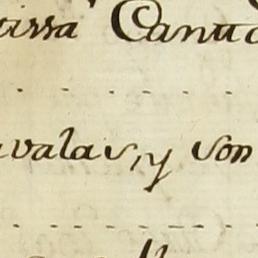 tissa Canuc
avalas, y son